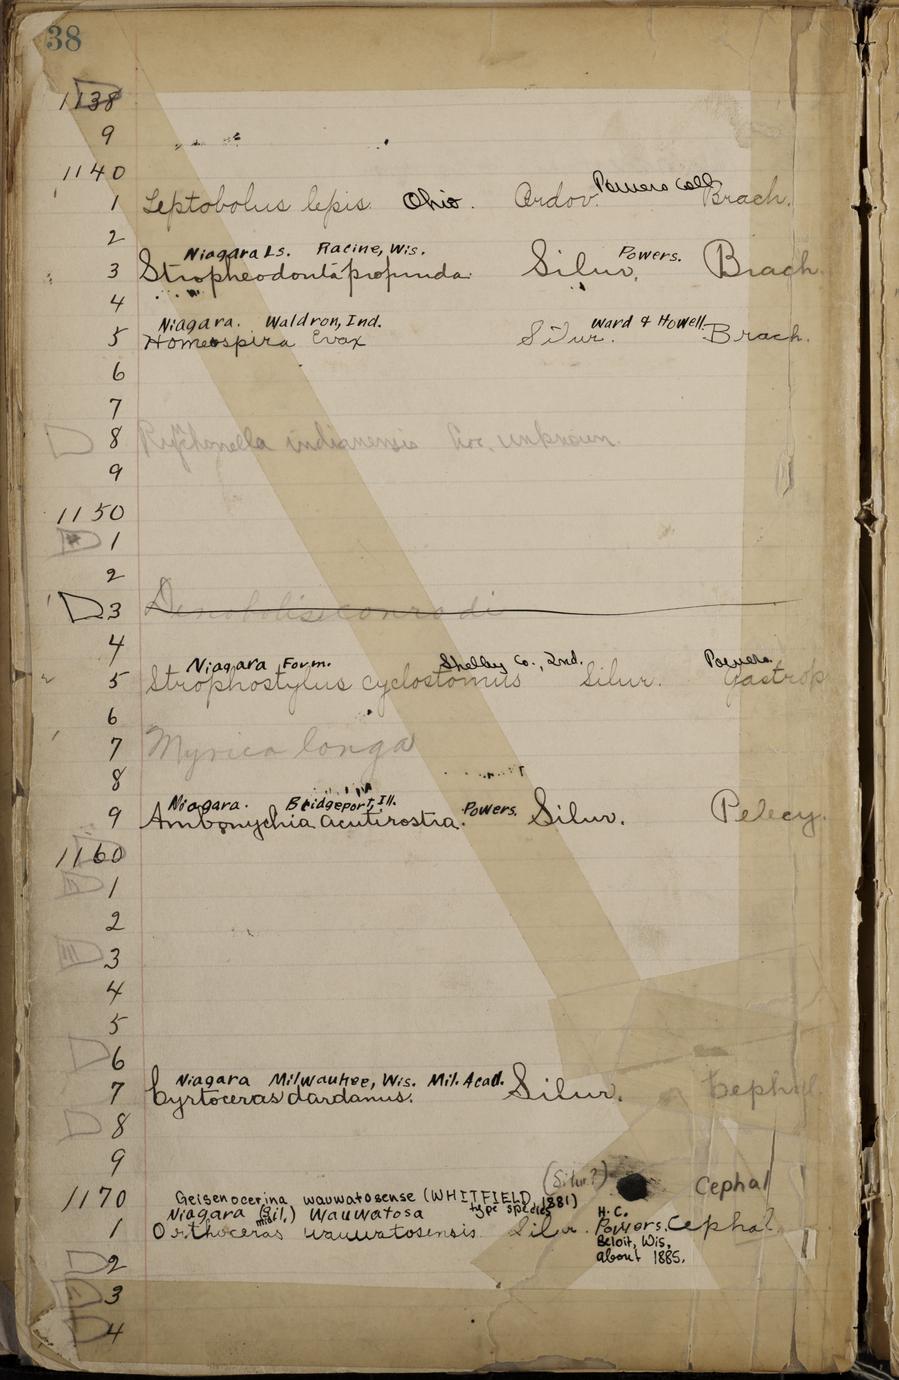 38
1138
9
1140
1 Leptobolus lepis. Ohio. Ordov. Powers Coll. Brach.
2
Niagara Ls. Racine, Wis. Powers.
3 Stropheodonta profunda. Silur. Brach.
4
Niagara. Waldron, Ind. Ward & Howell.
5 Homeospira Evax Silur. Brach.
6
7
8 indianensis Loc. unknown.
9
1150
1
2
3 conradi
4
Niagara Form. Shelby Co., Ind. Powers.
5 Strophostylus cyclostomus Silur. Gastrop
6
7 Myrica longa
8
Niagara. Bridgeport, Ill.
9 Ambonychia acutirostra. Powers. Silur. Pelecy.
1160
1
2
3
4
5
6
Niagara Milwaukee, Wis. Mil. Acad.
7 Cyrtoceras dardanus. Silur. Cephal
8
9
(Silur?)
1170 Geisenocerina wauwatosense (WHITFIELD, 1881) Cephal
Niagara (Sil.) Wauwatosa type species H. C.
1 Orthoceras wauwatosensis Silur. Powers. Cephal.
Beloit, Wis,
2 about 1885.
3
4